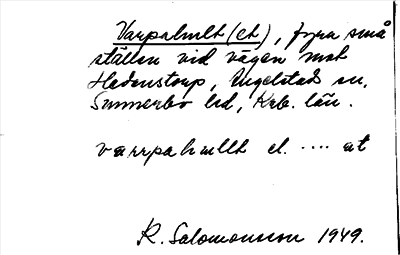 Varpahult (et), fyra små
ställen vid vägen mot
Hedenstorp, Angelstads sn,
Sunnerbo hd, Krb. län.
varrpahullt el. .... at
R. Salomonsson 1949.